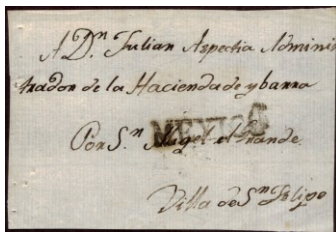 A Dn. Julian Aspectia Adminis
trador de la Hacienda de ybarra
Por Sn. Migel el Grande.
MEXICO
Villa de Sn. Felipe